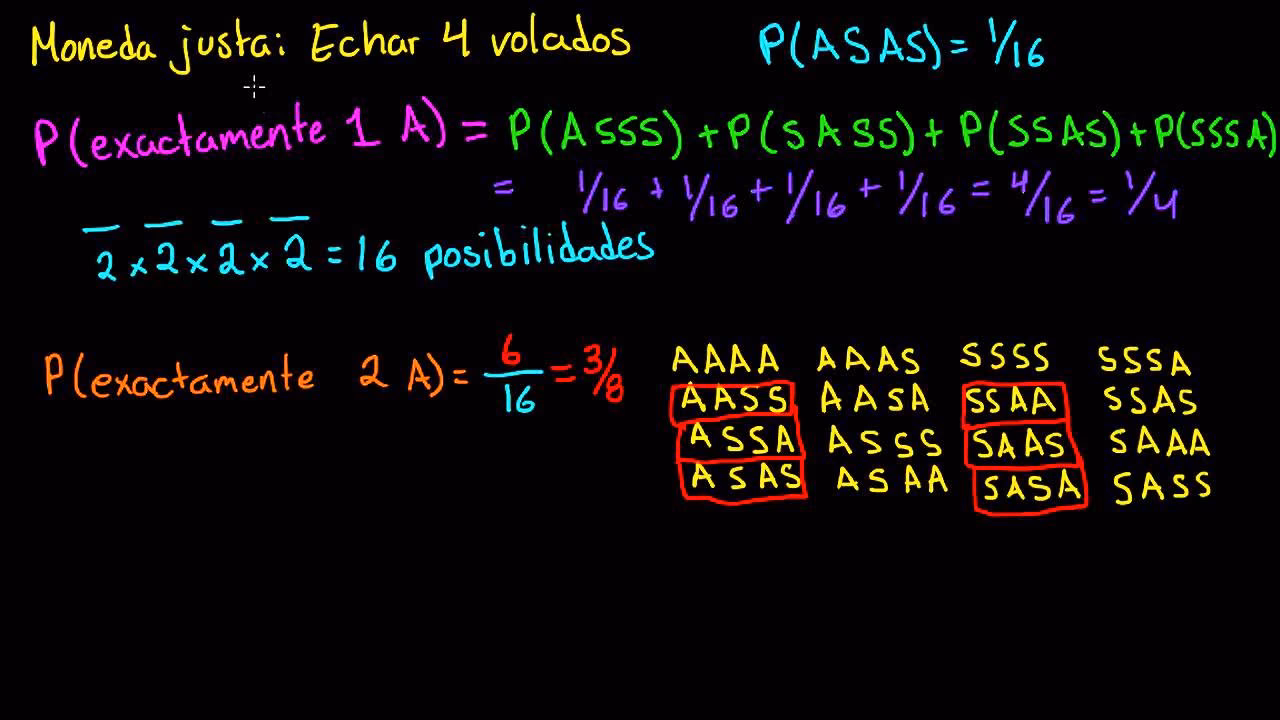 Moneda justa: Echar 4 volados
P(ASAS) = 1/16
P(exactamente 1 A) = P(ASSS) + P(SASS) + P(SSAS) + P(SSSA)
= 1/16 + 1/16 + 1/16 + 1/16 = 4/16 = 1/4
2 x 2 x 2 x 2 = 16 posibilidades
P(exactamente 2 A) = 6/16 = 3/8
AAAA AAAS SSSS SSSA
AASS AASA SSAA SSAS
ASSA ASSS SAAS SAAA
ASAS ASAA SASA SASS